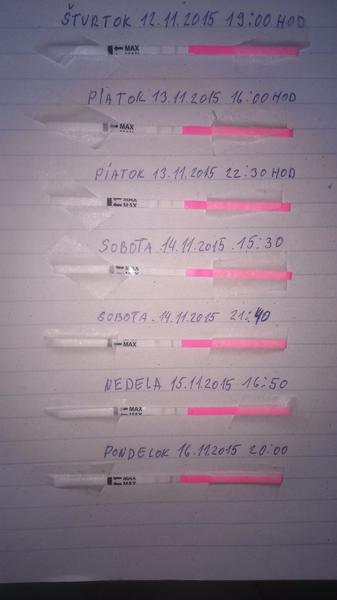 ŠTVRTOK 12.11.2015 19:00 HOD
MAX
PIATOK 13.11.2015 16:00 HOD
MAX
PIATOK 13.11.2015 22:30 HOD
MAX
MAX
SOBOTA 14.11.2015 15:30
SOBOTA 14.11.2015 21:40
MAX
NEDELA 15.11.2015 16:50
MAX
PONDELOK 16.11.2015 20:00
MAX
MAX